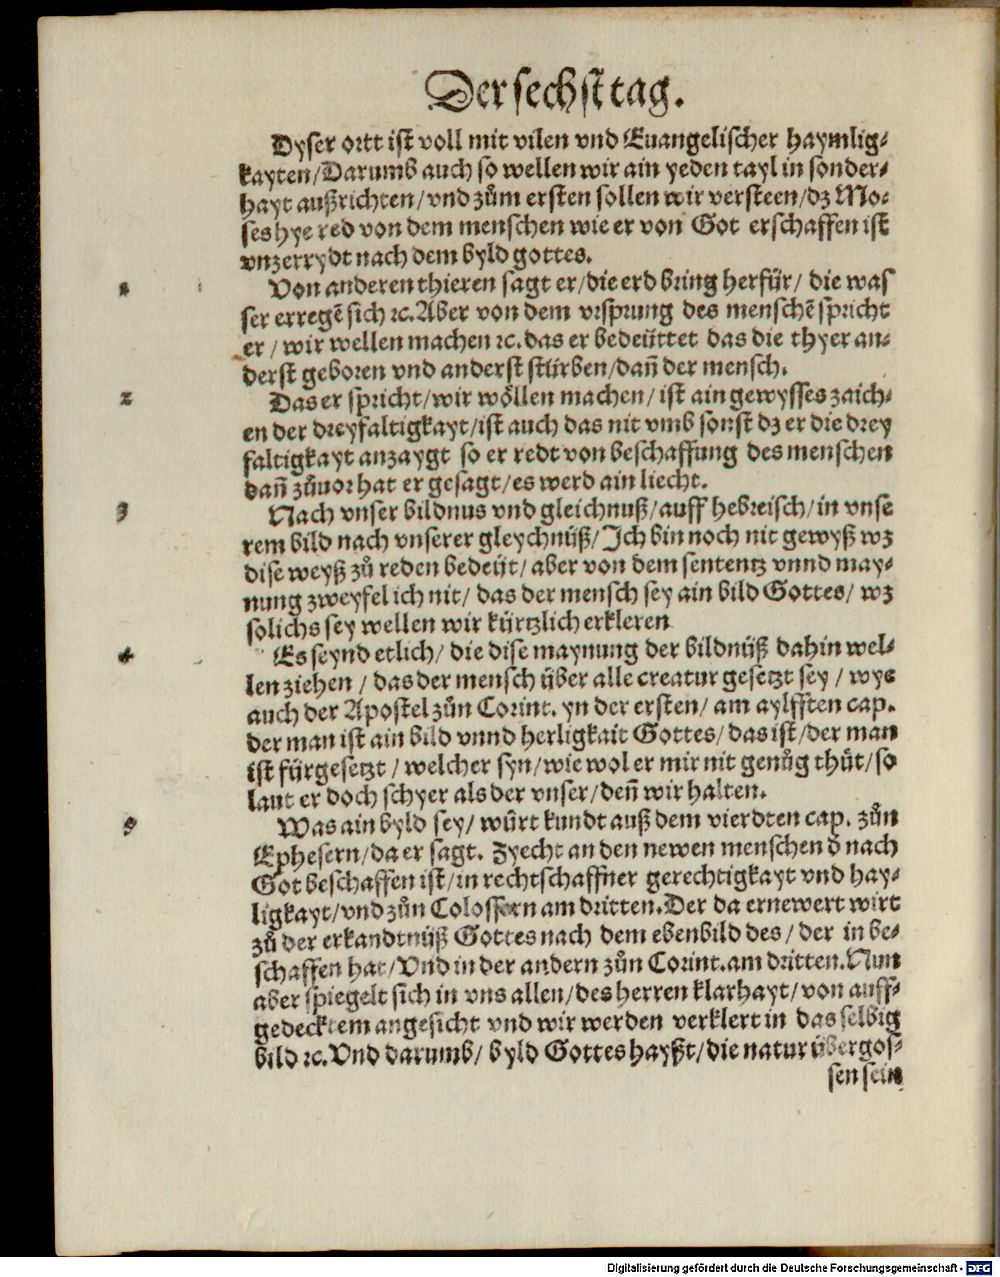 Der sechst tag.
Dyser ortt ist voll mit vilen vnd Euangelischer haymlig⸗
kayten/Darumb auch so wellen wir ain yeden tayl in sonder⸗
hayt außrichten/vnd zům ersten sollen wir versteen/dz Mo⸗
ses hye red von dem menschen wie er von Got erschaffen ist
vnzerrydt nach dem byld gottes.
1 Von anderen thieren sagt er/die erd bring herfür/ die was
ser erregē sich ꝛc.Aber von dem vrsprung des menschē spricht
er / wir wellen machen ꝛc. das er bedeüttet das die thyer an⸗
derst geboren vnd anderst stürben/dañ der mensch.
2 Das er spricht/wir wöllen machen/ ist ain gewysses zaich⸗
en der dreyfaltigkayt/ist auch das nit vmb sonst dz er die drey
faltigkayt anzaygt so er redt von beschaffung des menschen
dañ zůuor hat er gesagt/es werd ain liecht.
3 Nach vnser bildnus vnd gleichnuß/auff hebreisch/in vnse
rem bild nach vnserer gleychnüß/Ich bin noch nit gewyß wz
dise weyß zů reden bedeüt/ aber von dem sententz vnnd may⸗
nung zweyfel ich nit/ das der mensch sey ain bild Gottes/ wz
solichs sey wellen wir kürtzlich erkleren
4 Es seynd etlich/ die dise maynung der bildnüß dahin wel⸗
len ziehen / das der mensch über alle creatur gesetzt sey / wye
auch der Apostel zůn Corint. yn der ersten/ am aylfften cap.
der man ist ain bild vnnd herligkait Gottes/ das ist/der man
ist fürgesetzt / welcher syn/wie wol er mir nit genůg thůt/so
laut er doch schyer als der vnser/deñ wir halten.
5 Was ain byld sey/ würt kundt auß dem vierdten cap. zůn
Ephesern/da er sagt. Zyecht an den newen menschen d̄ nach
Got beschaffen ist/in rechtschaffner gerechtigkayt vnd hay⸗
ligkayt/vnd zůn Colossern am dritten.Der da ernewert wirt
zů der erkandtnüß Gottes nach dem ebenbild des/ der in be⸗
schaffen hat/Vnd in der andern zůn Corint.am dritten.Nun
aber spiegelt sich in vns allen/des herren klarhayt/von auff⸗
gedecktem angesicht vnd wir werden verklert in das selbig
bild ꝛc.Vnd darumb/ byld Gottes hayßt/die natur übergos⸗
sen sein
Digitalisierung gefördert durch die Deutsche Forschungsgemeinschaft - DFG